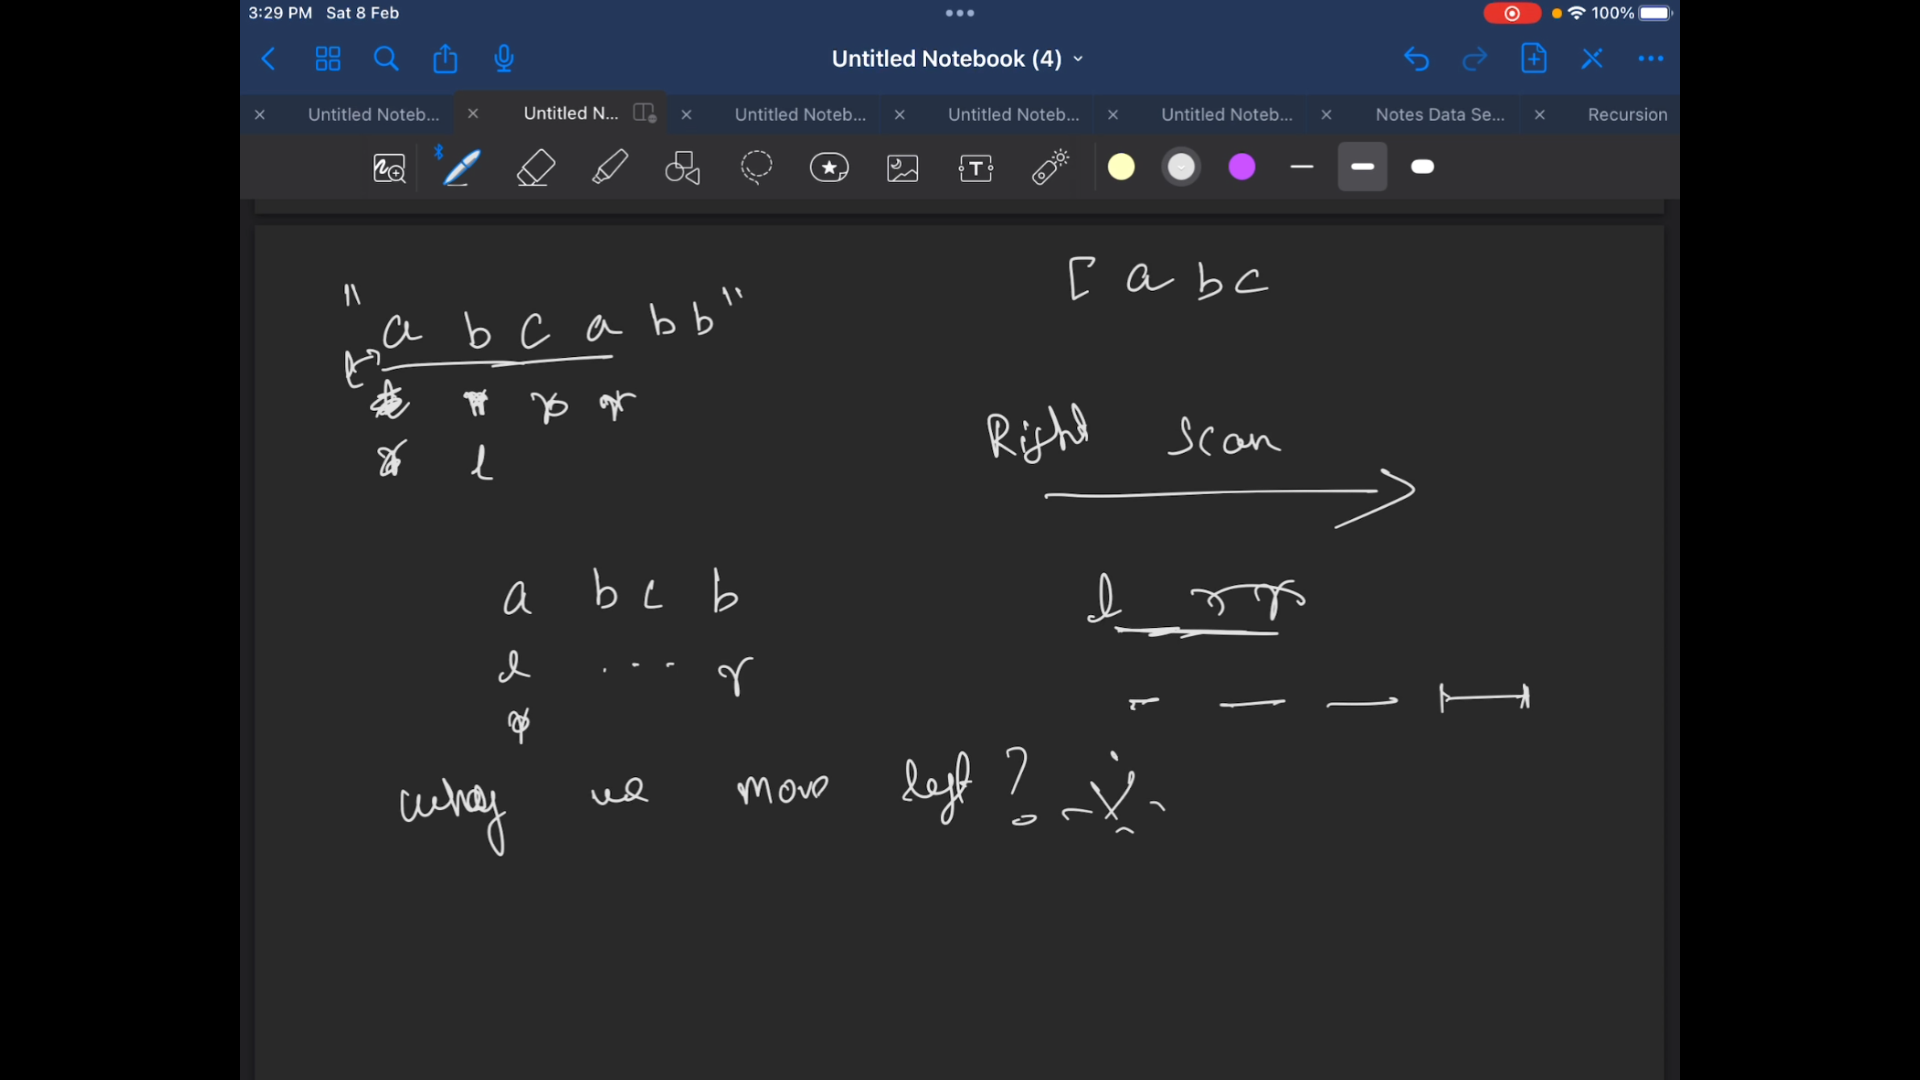 3:29 PM Sat 8 Feb
100%
Untitled Notebook (4)
Untitled Noteb...
Untitled N...
Untitled Noteb...
Untitled Noteb...
Untitled Noteb...
Notes Data Se...
Recursion
T
[ a b c
"a b c a b b"
r r
l
Right Scan
a b c b
l r r
l ... r
why we move left ?